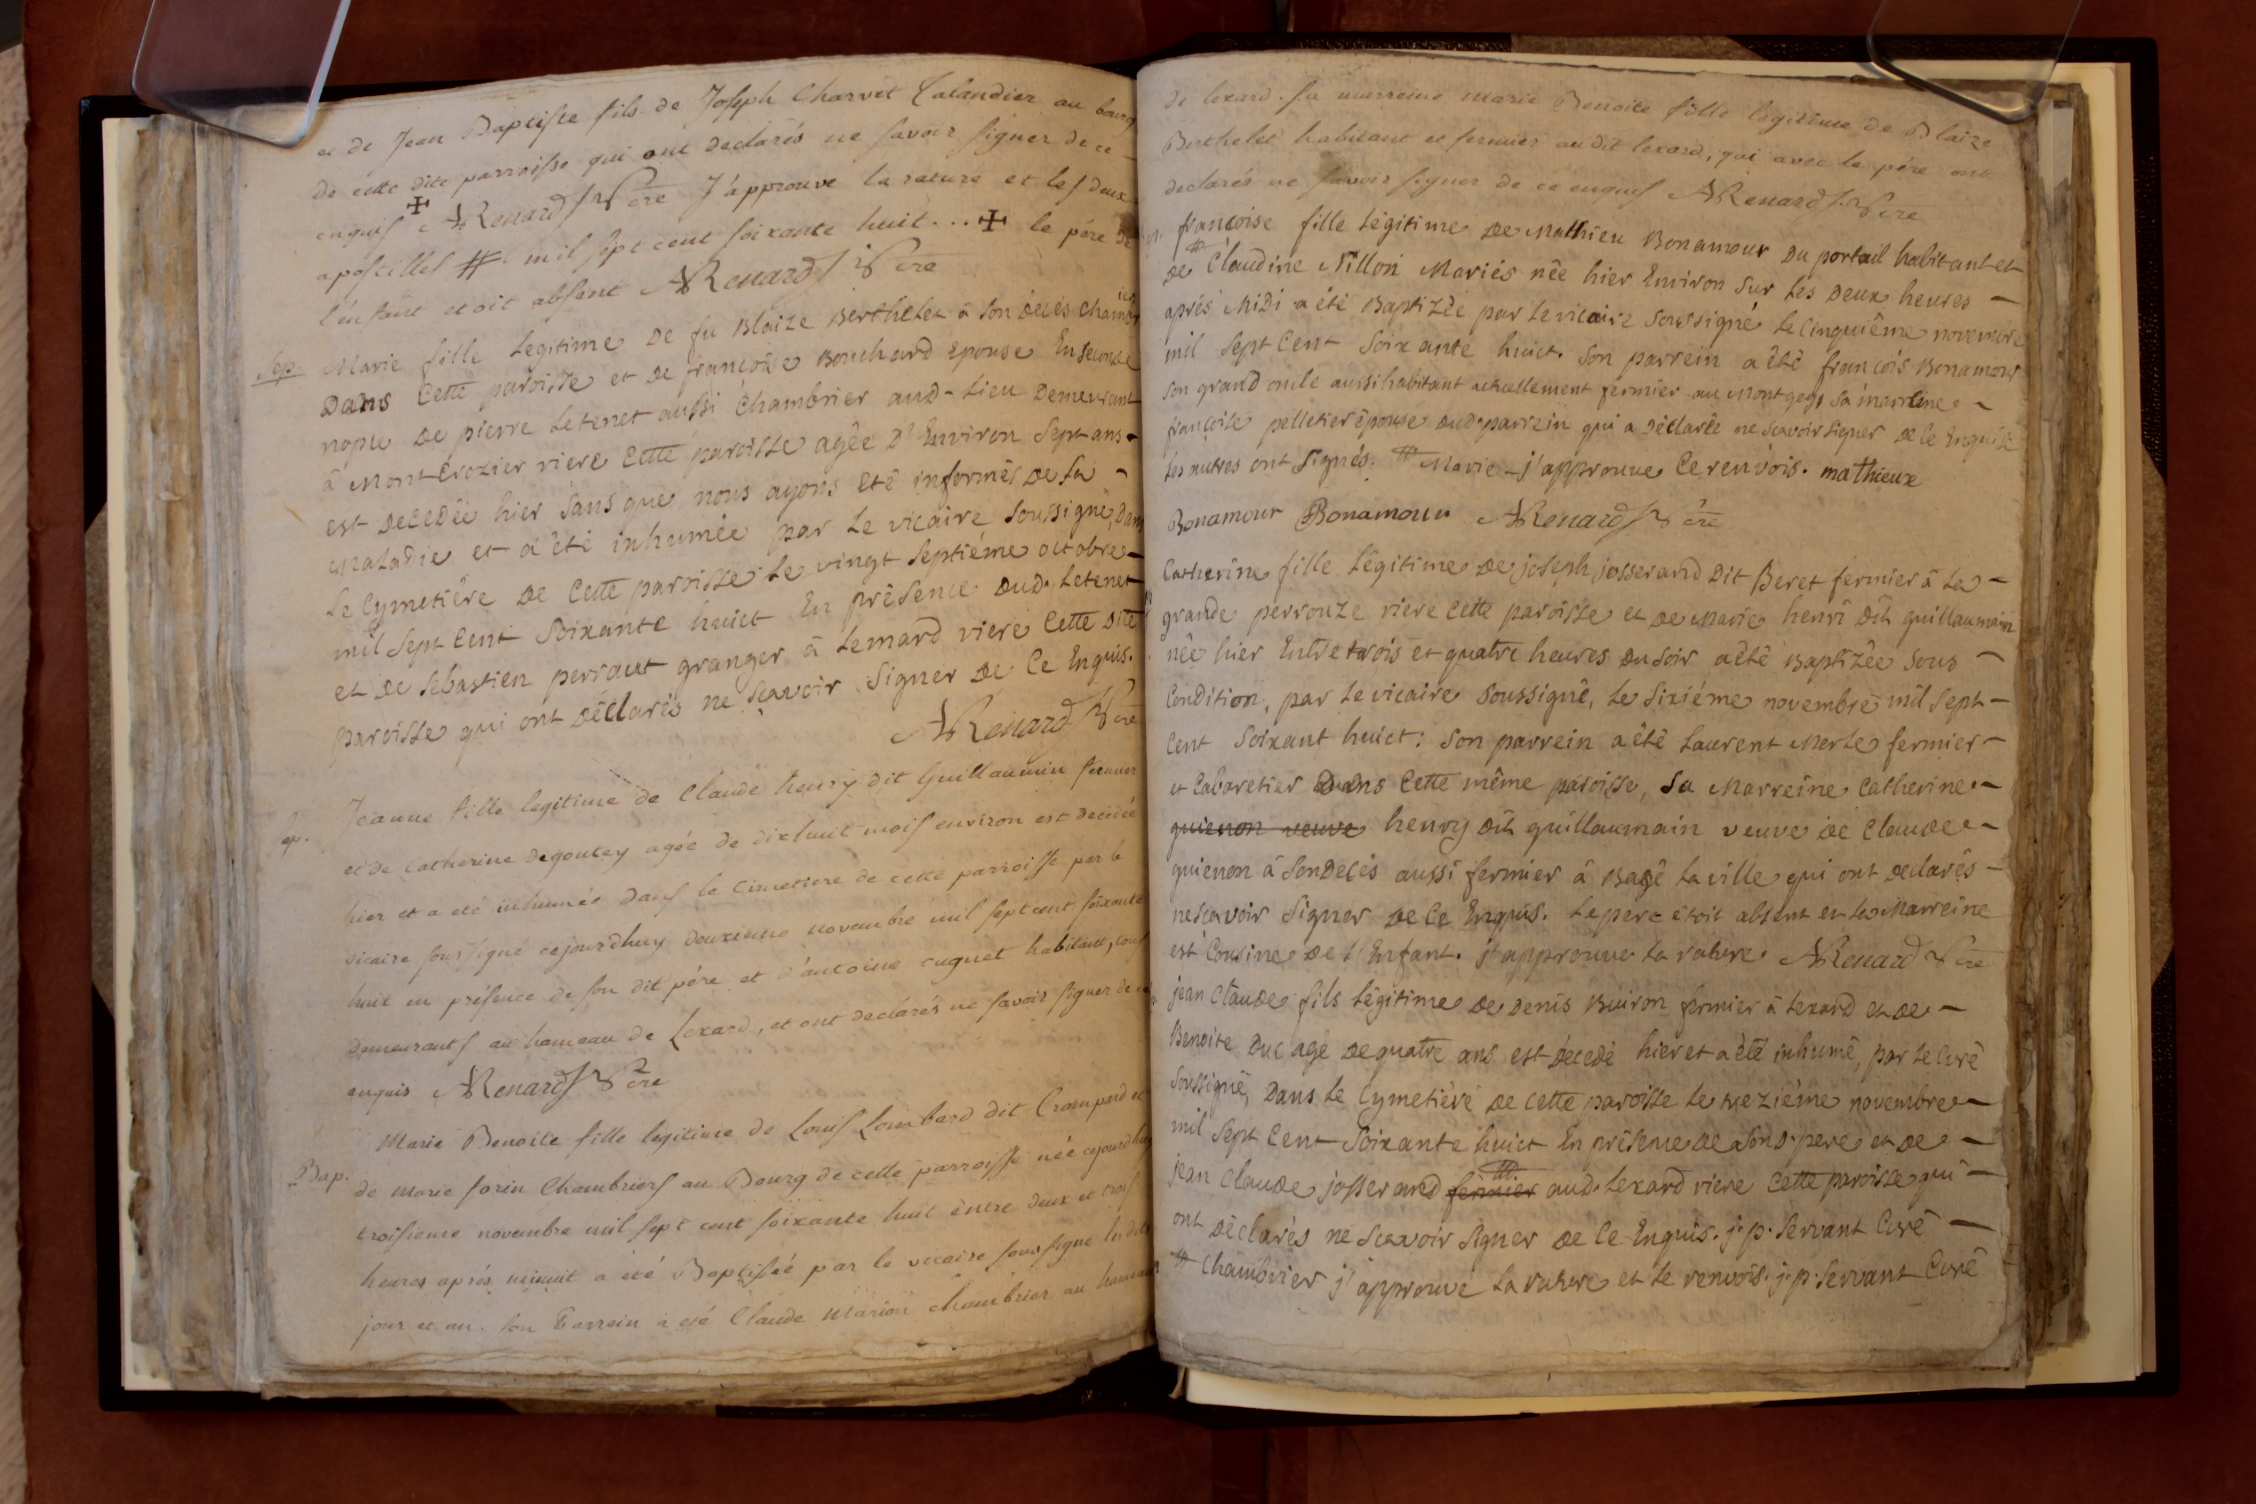 et de Jean Baptiste fils de Joseph Charvet Calandier au bourg
de cette dite parroisse qui ont declarés ne savoir signer de ce
enquis ✠ ARenard Vicre J'approuve la rature et les deux
apostilles # mil sept cent soixante huit... ✠ le pére de
l'enfant etoit absent ARenard Vicre
Sep. Marie fille legitime De fu Blaize Berthelet â son decés chambrier
Dans Cette paroisse et De francoise Bouchard Epouse En seconde
nopce De pierre Letenet aussi Chambrier aud-Lieu Demeurant
â MontCrozier riere Cette paroisse agêe D'Environ Sept ans
est DeCedêe hier sans que nous ayons etê informês De sa
Maladie et a êtê inhumêe par Le vicaire soussignê, Dans
Le Cymetiêre De Cette paroisse Le vingt septiéme octobre
mil sept Cent Soixante huict En prêsence Dud. Letenet
et De Sebastien perraut granger â Lemard riere Cette Dite
paroisse qui ont Dêclarés ne sçavoir signer De Ce Enquis.
ARenard Vicre
Sep. Jeanne fille legitime de Claude henry dit Guillaumin fermier
et de Catherine Degoutey agée de dixhuit mois environ est decedée
hier et a eté inhumée Dans le Cimetiere de cette parroisse par le
vicaire soussigné cejourdhuy deuxieme novembre mil sept cent soixante
huit en présence de son dit pére et d'antoine cuguet habitant, tous
demeurants au hameau de Lexard, et ont declarés ne savoir signer de ce
enquis ARenard Vicre
Bap. Marie Benoite fille legitime de Louis Lombard dit Crompard et
de Marie sorin Chambriers au Bourg de cette parroisse née cejourdhuy
troisieme novembre mil sept cent soixante huit êntre deux et trois
heures aprés minuit a été Baptisée par le vicaire soussigné les dits
jour et an. son Parrein a eté Claude Marion chambrier au hameau
de lexard. sa marreine Marie Benoite fille legitime de Blaize
Berthelet habitant et fermier au dit lexard, qui avec le pére ont
declarés ne savoir signer de ce enquis ARenard Vicre
francoise fille Légitime De Mathieu Bonamour Du portail habitant et
De # Claudine Nillon Mariés nêe hier Environ sur Les Deux heures
aprés Midi a êtê Baptizêe par Le vicaire soussigné Le Cinquiême novembre
mil Sept Cent Soixante huict. Son parrein a êtê francois Bonamour
son grand oncle aussi habitant actuellement fermier au Montgey, sa marreine
françoise pelletier êpouse Dud. parrein qui a Dêclarêe ne sçavoir signer De Ce Enquise
Les autres ont Signés. # Marie j'approuve Ce renvois. mathieux
Bonamour Bonamour ARenard Vicre
Catherine fille Légitime De joseph josserand Dit Beret fermier â La
grande perrouze riere Cette paroisse et De Marie henri Dit guillaumain
nêe hier Entre trois et quatre heures Du soir a êtê Baptizêe sous
Condition, par Le vicaire soussignê, Le Sixiéme novembre mil Sept
Cent Soixant huict: Son parrein a êtê Laurent Merle fermier
et Cabaretier Dans Cette même paroisse, Sa Marreine Catherine
guienon veuve henry Dit guillaumain veuve De Claude
guienon â Son DeCés aussi fermier â Bagê La ville qui ont Declarês
ne sçavoir Signer De Ce Enquis. Le pere etoit absent et La Marreine
est Cousine De L'Enfant. j'approuve La rature. ARenard Vicre
jean Claude fils Légitime De Denis Buiron fermier â Lexard et De
Benoite Duc agê De quatre ans est DéCedê hier et a êtê inhumê, par Le Curê
Soussignê, Dans Le Cymetiérê De Cette paroisse Le treziéme novembre
mil Sept Cent Soixante huict En prêsence De Son d. pere et De
jean Claude josserand fermier # aud. Lexard riere Cette paroisse qui
ont Dêclarês ne sçavoir Signer De Ce Enquis. j. p. Servant Curê
# Chambrier j'approuve La rature et Le renvois. j. p. Servant Curê